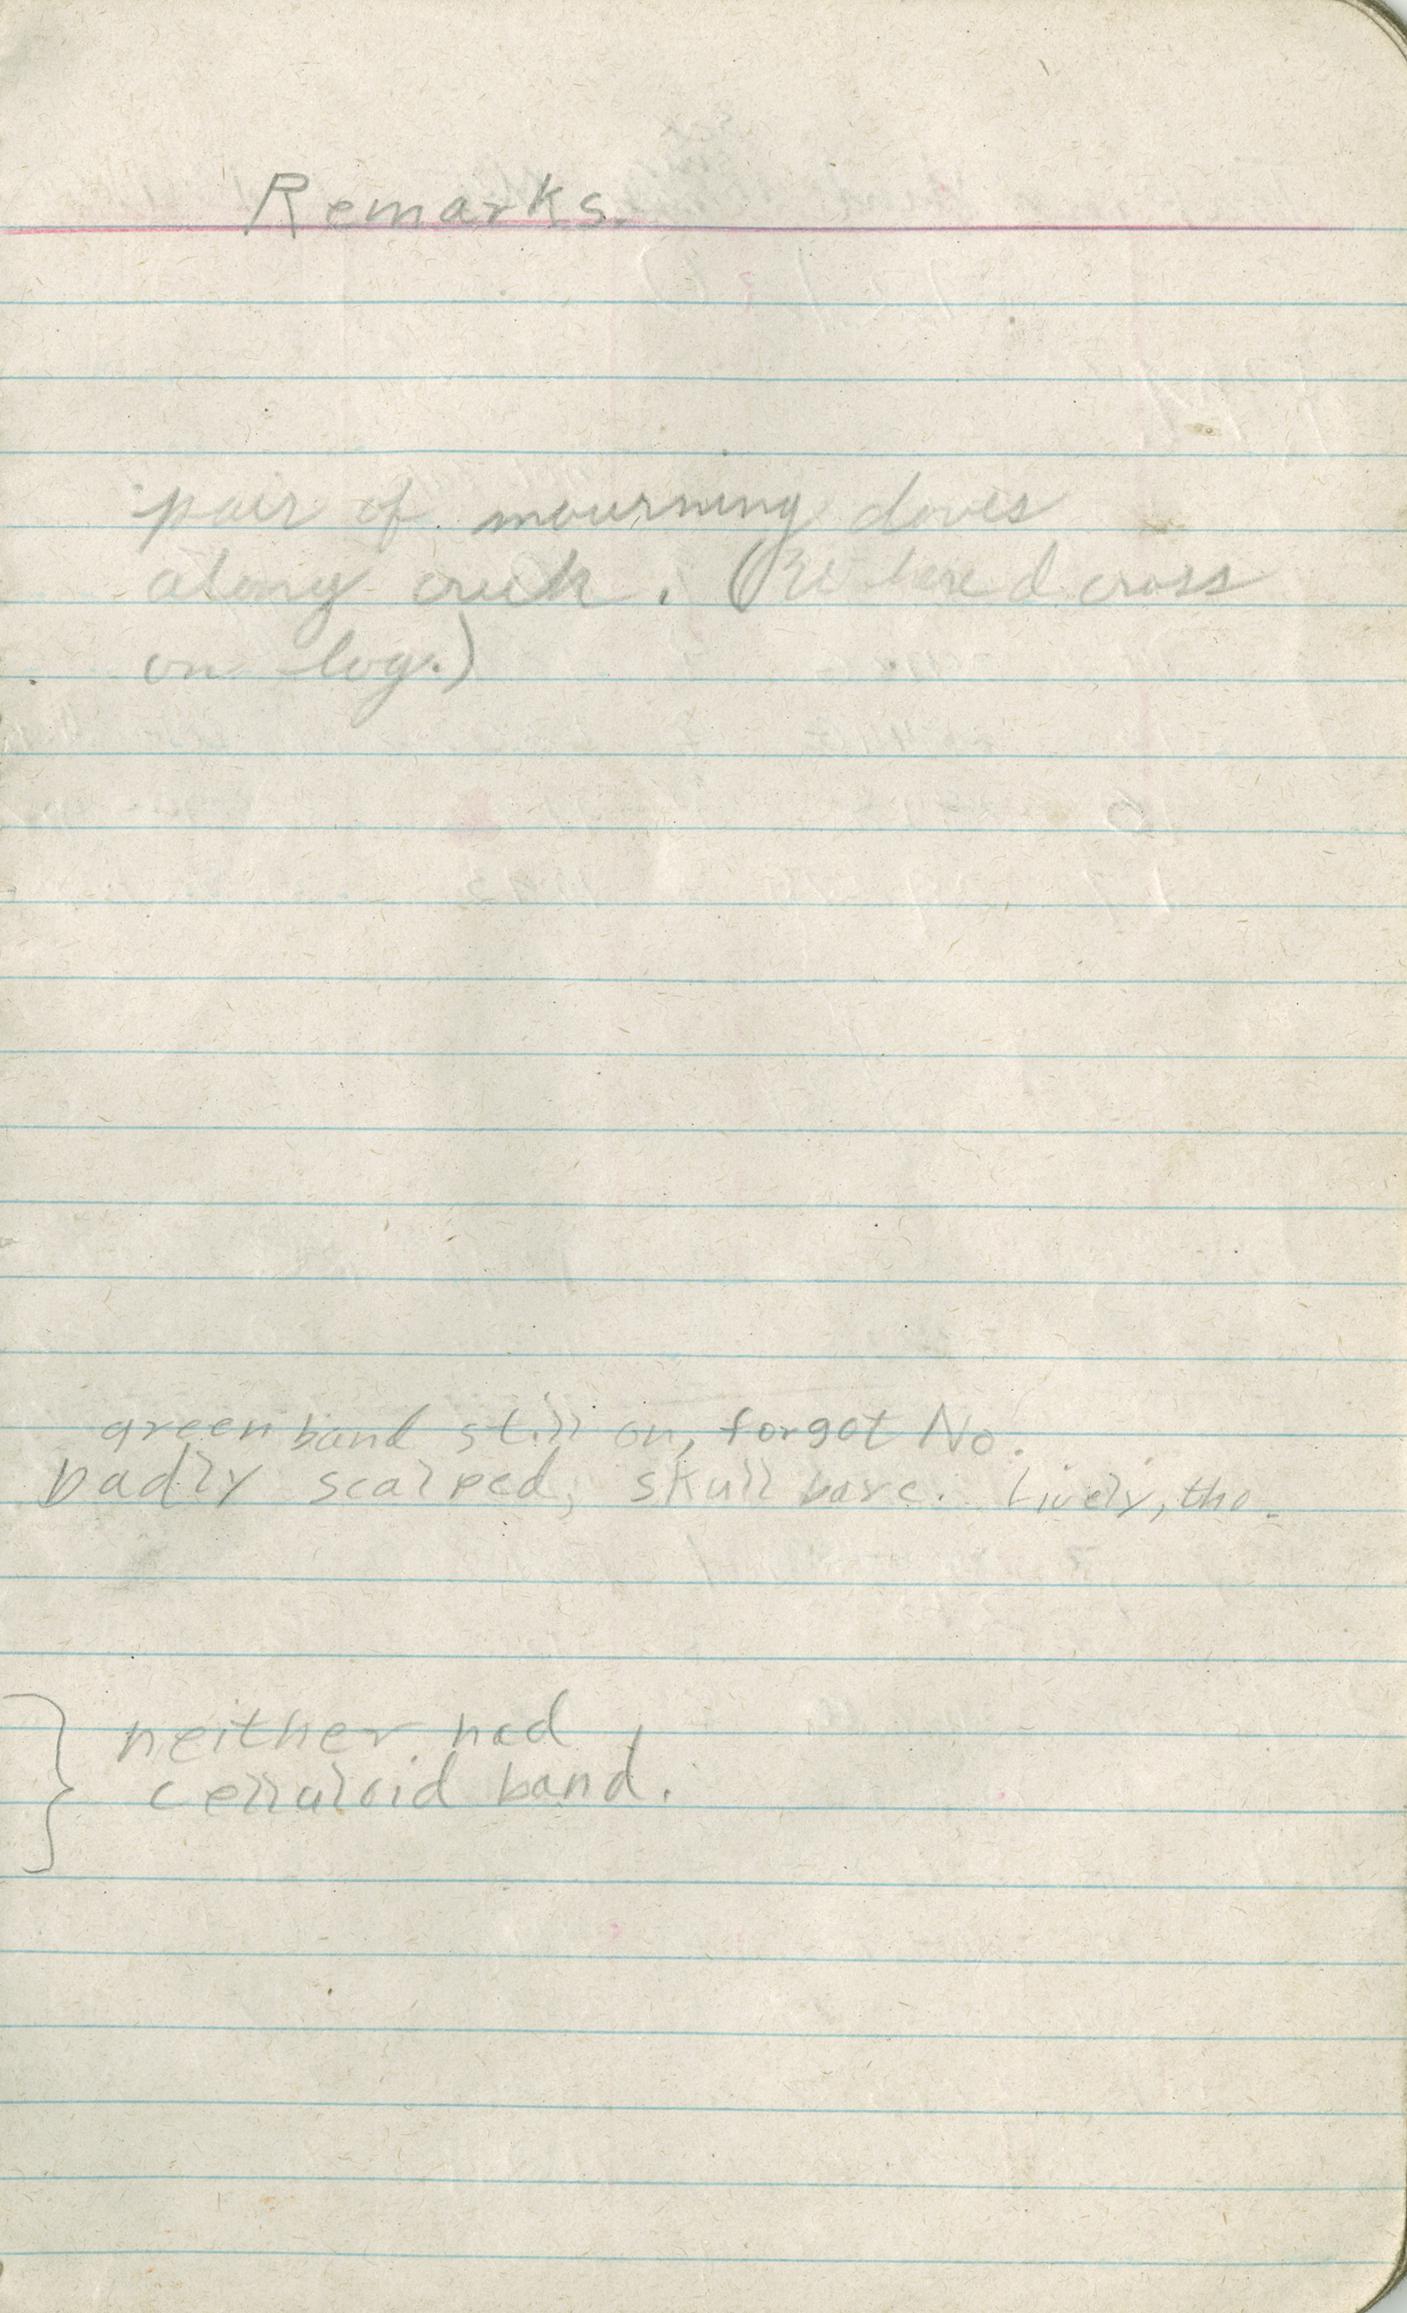 Remarks.
pair of mourning doves
along creek. (Where I cross
on log.)
green band still on, forgot No.
Badly scalped; skull bare. Lively, tho.
neither had
celluloid band.